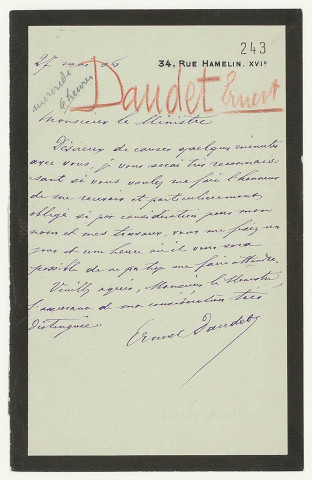 243
27 mai 06
34, RUE HAMELIN. XVIe
mercredi
6 heures
Daudet Ernest
Monsieur le Ministre
Désireux de causer quelques minutes
avec vous, je vous serai très reconnais-
sant si vous voulez me faire l'honneur
de me recevoir et particulièrement
obligé si par considération pour mon
nom et mes travaux, vous me fixez un
jour et une heure où il vous sera
possible de ne pas trop me faire attendre.
Veuillez agréer, Monsieur le Ministre
l'assurance de ma considération très
distinguée.
Ernest Daudet